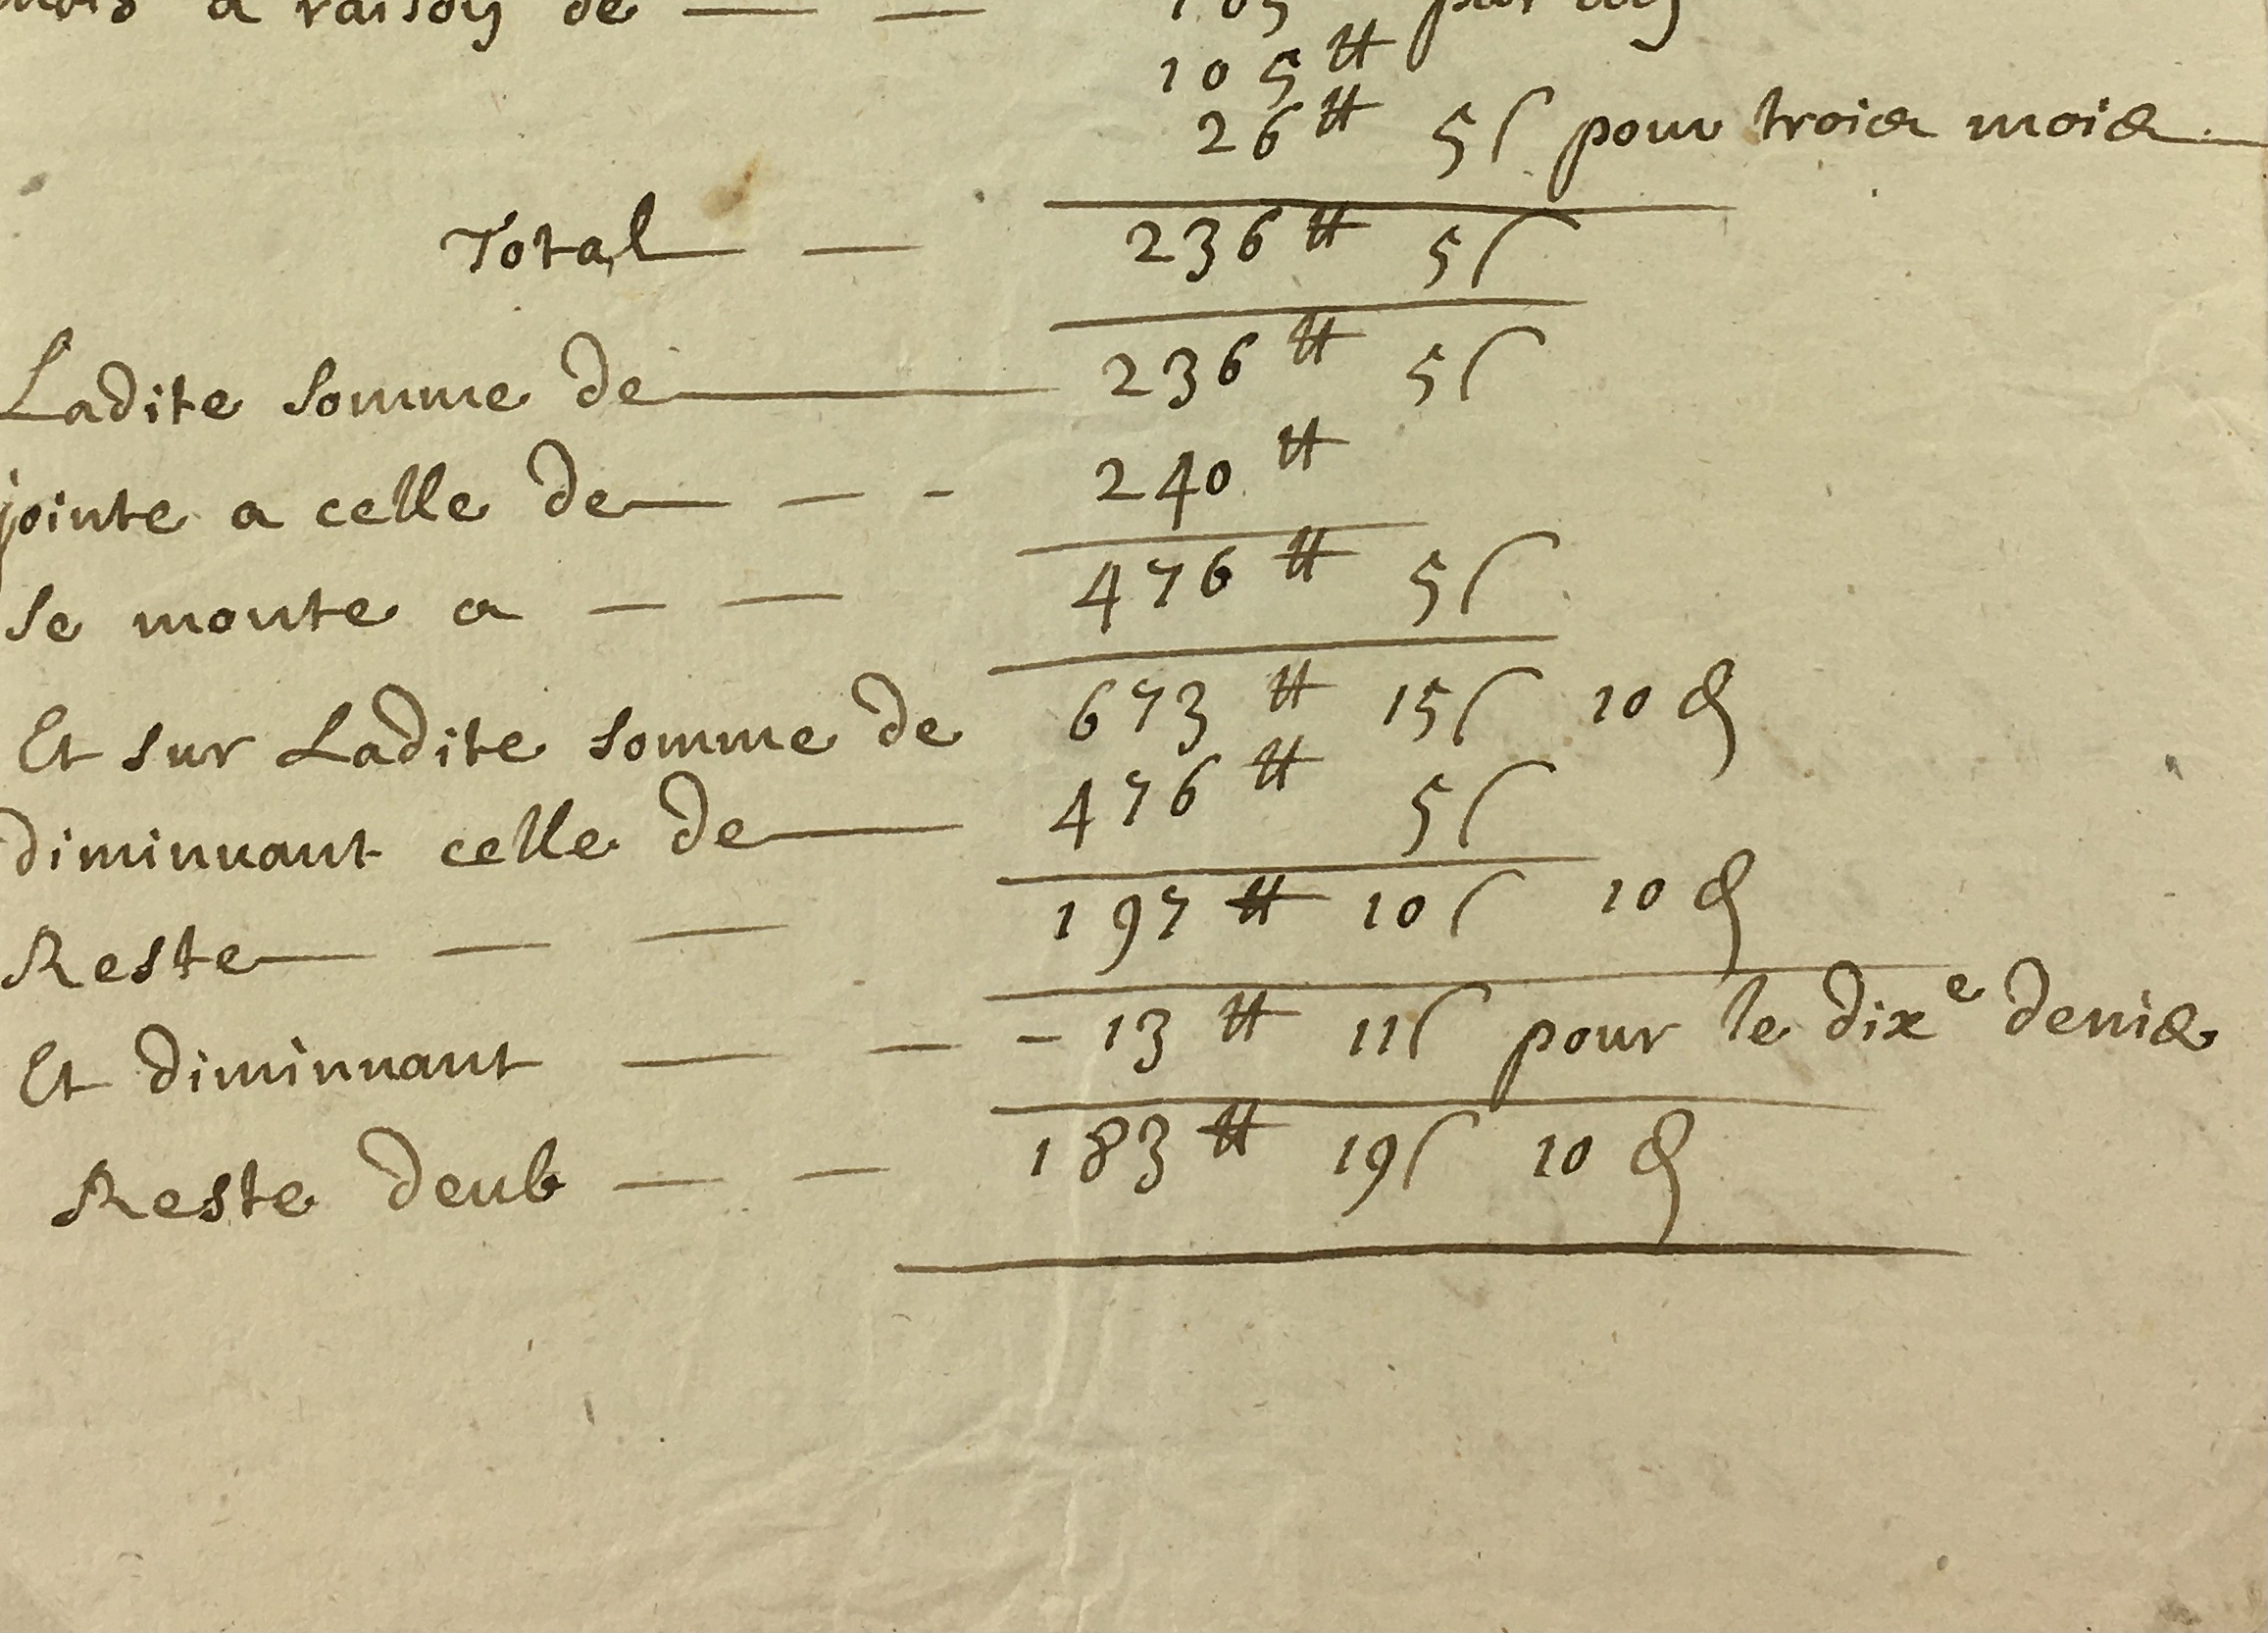 mois a raison de — — 105 par an
105 ₶
26 ₶ 5 ſ pour trois mois
Total — 236 ₶ 5 ſ
Ladite somme de — 236 ₶ 5 ſ
jointe a celle de — — - 240 ₶
se monte a — — 476 ₶ 5 ſ
Et sur Ladite somme de 673 ₶ 15 ſ 10 ₰
diminuant celle de — 476 ₶ 5 ſ
Reste — — — 197 ₶ 10 ſ 10 ₰
Et diminuant — — - 13 ₶ 11 ſ pour le dixe denie
Reste deub — — 183 ₶ 19 ſ 10 ₰